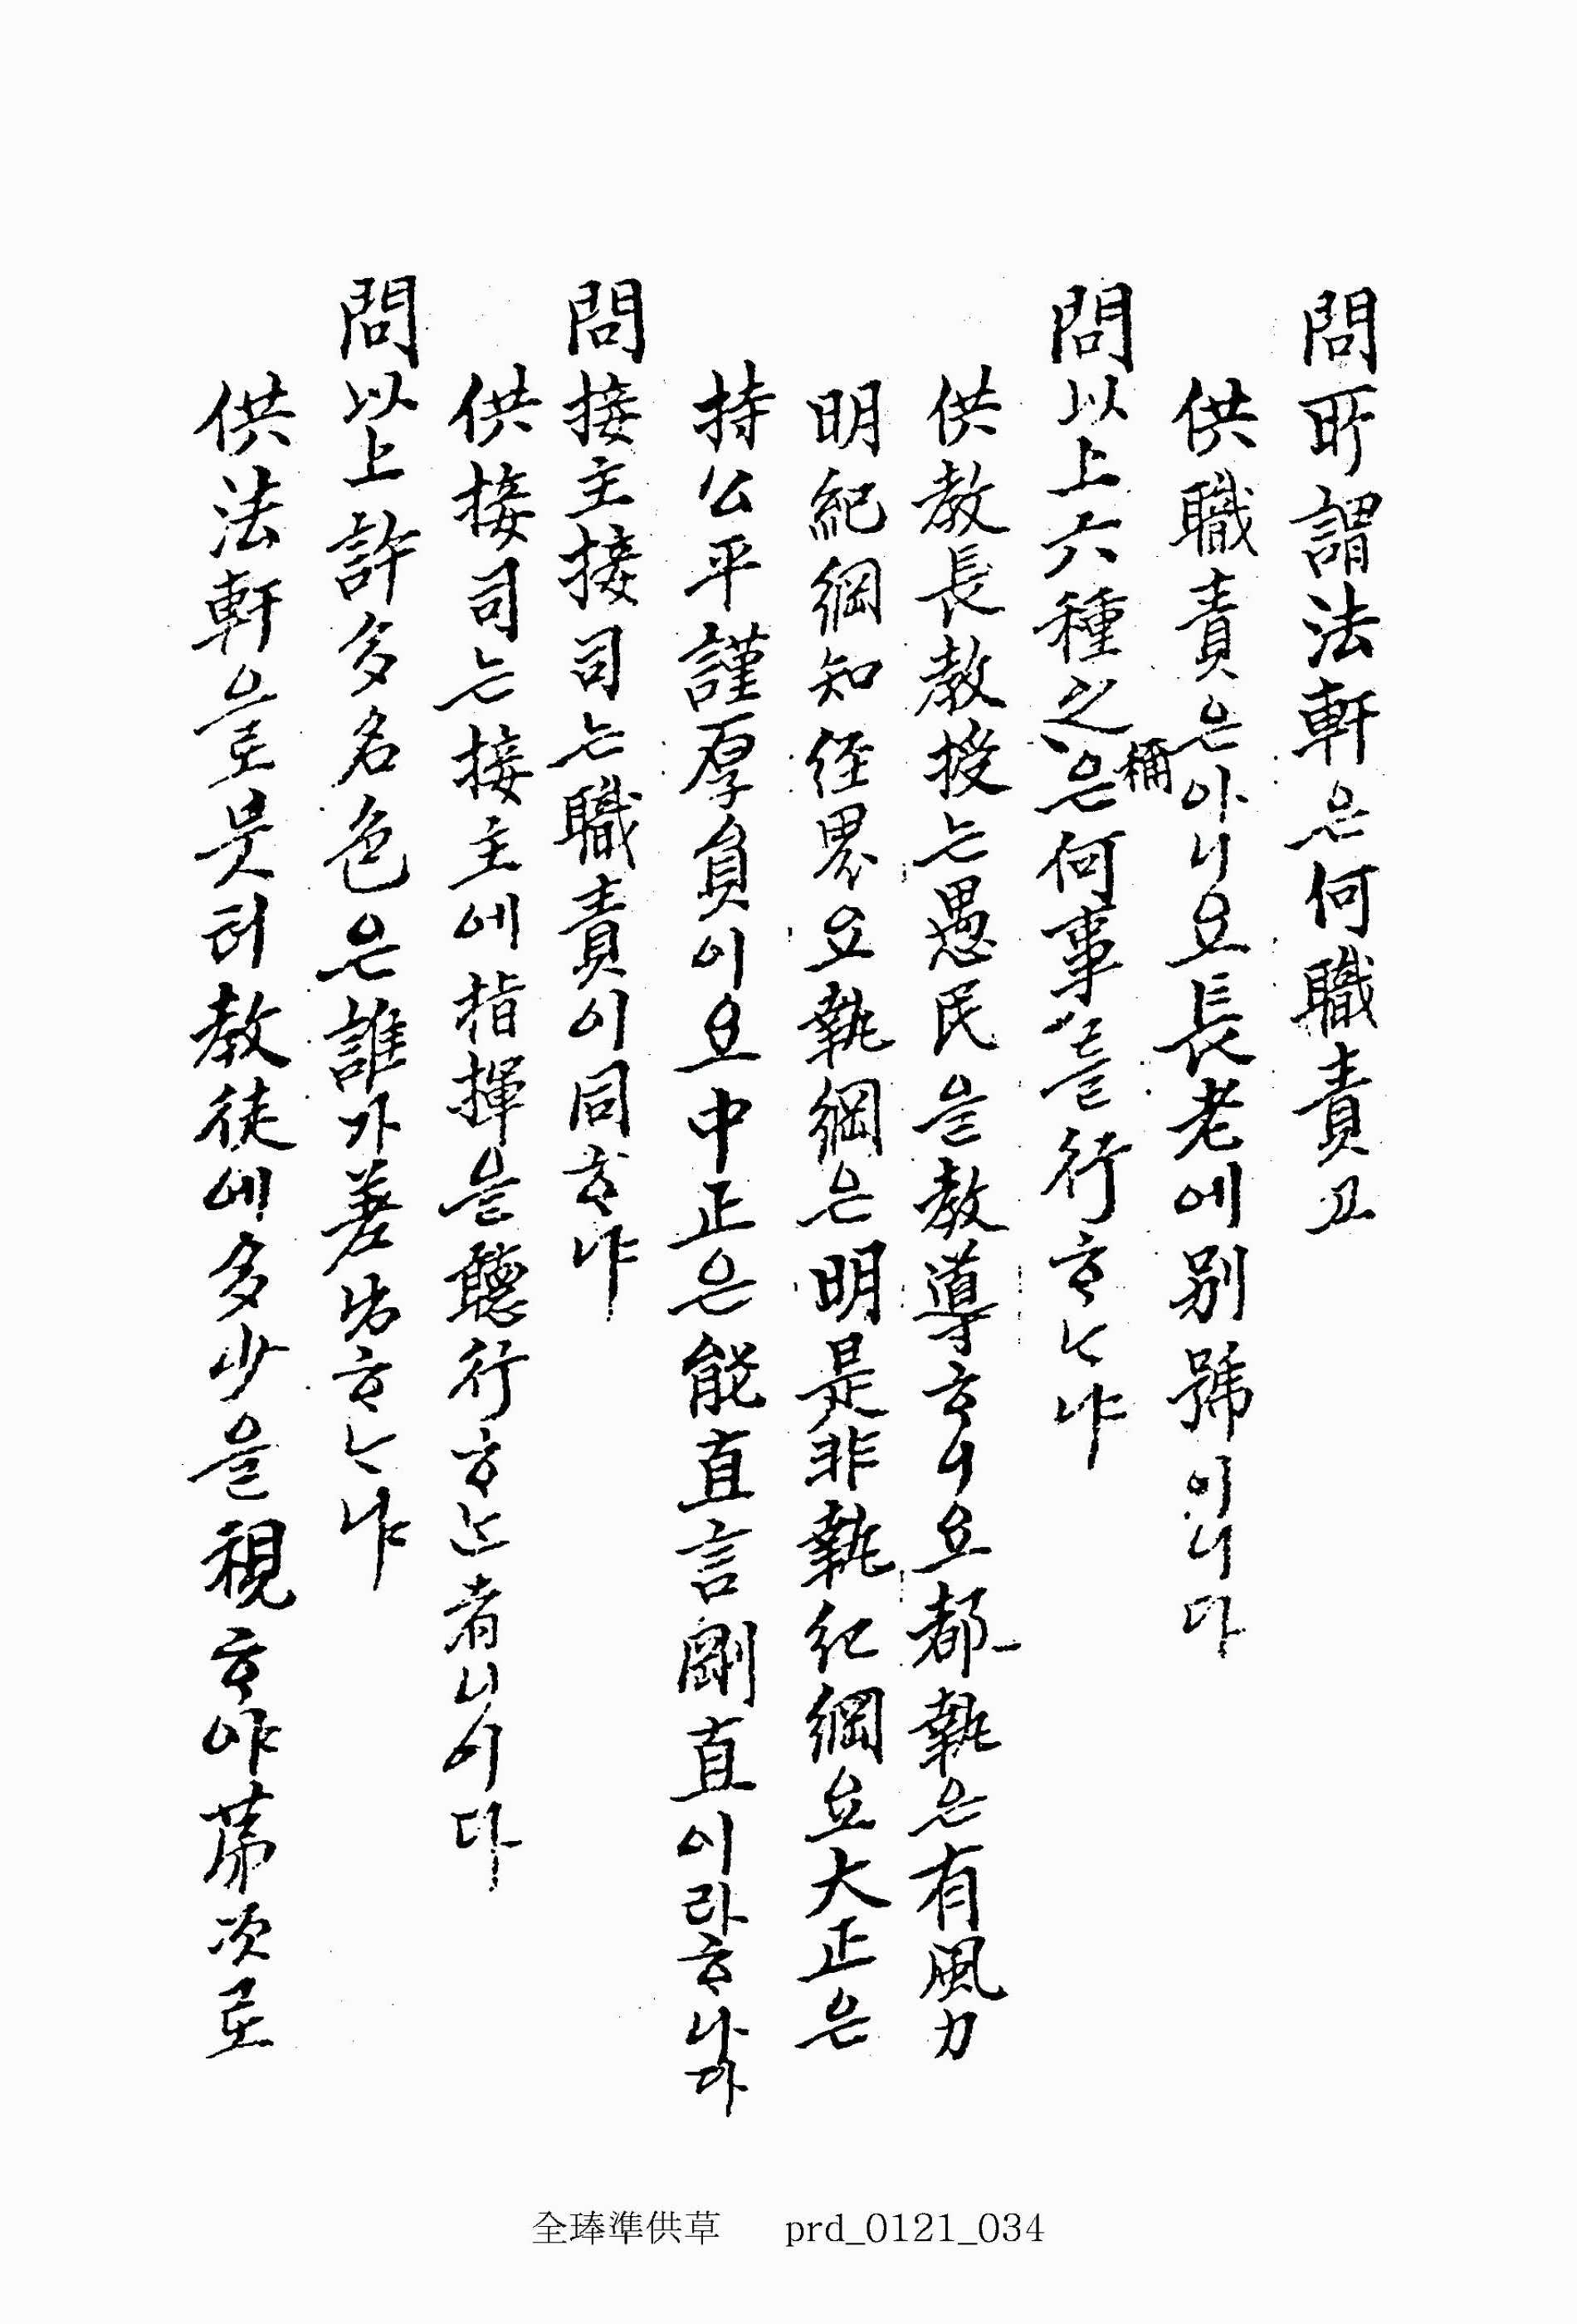 問所謂法軒은何職責고
供職責은아니요長老에別號이니다
問以上六種之稱은何事를行ᄒᆞᄂᆞ냐
供敎長敎授는愚民을敎導ᄒᆞ미요都執은有風力
明紀綱知経界요執綱은明是非執紀綱요大正은
持公平謹厚員이요中正은能直言剛直이라ᄒᆞ나다
問接主接司는職責이同ᄒᆞ냐
供接司는接主에指揮을聽行ᄒᆞ는者니이다
問以上許多名色은誰가差出ᄒᆞᄂᆞ냐
供法軒으로붓허敎徒에多少을視ᄒᆞ야第次로
全琫準供草 prd_0121_034